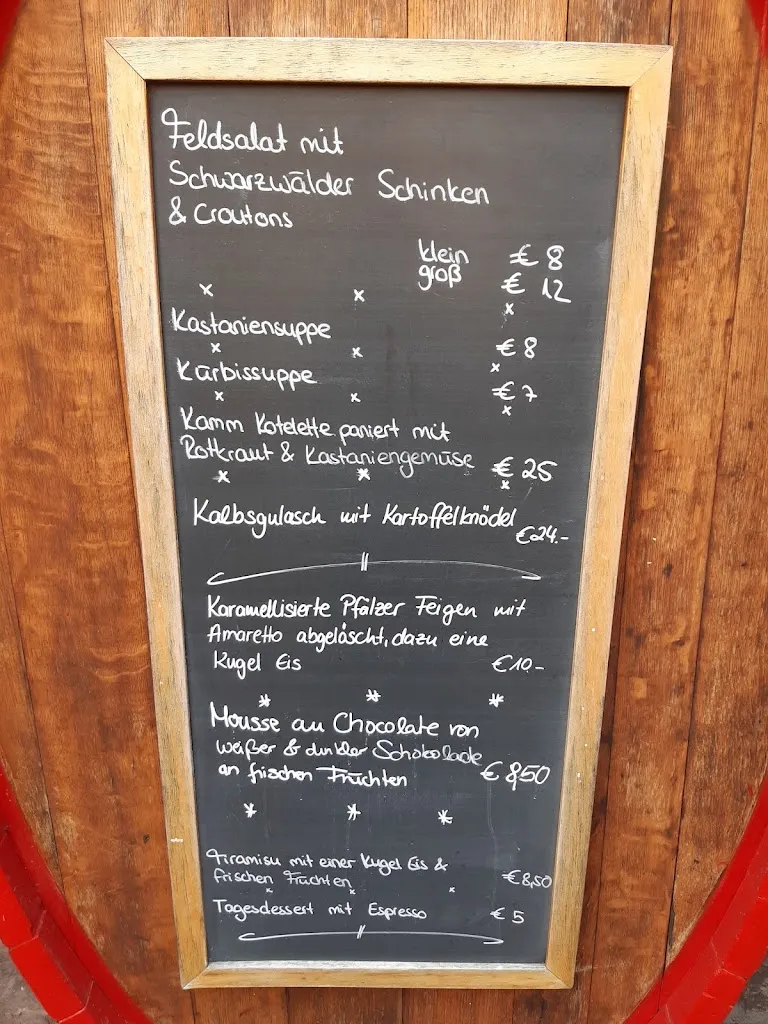 Feldsalat mit
Schwarzwälder Schinken
& Croutons
klein € 8
groß € 12
x x x
Kastaniensuppe € 8
x x x
Kürbissuppe € 7
x x x
Kamm Kotelette paniert mit
Rotkraut & Kastaniengemüse € 25
x x x
Kalbsgulasch mit Kartoffelknödel
€24.-
Karamellisierte Pfälzer Feigen mit
Amaretto abgelöscht, dazu eine
Kugel Eis €10.-
* * *
Mousse au Chocolate von
weißer & dunkler Schokolade
an frischen Früchten € 8,50
* * *
Tiramisu mit einer Kugel Eis &
frischen Früchten €8,50
x x x
Tagesdessert mit Espresso € 5